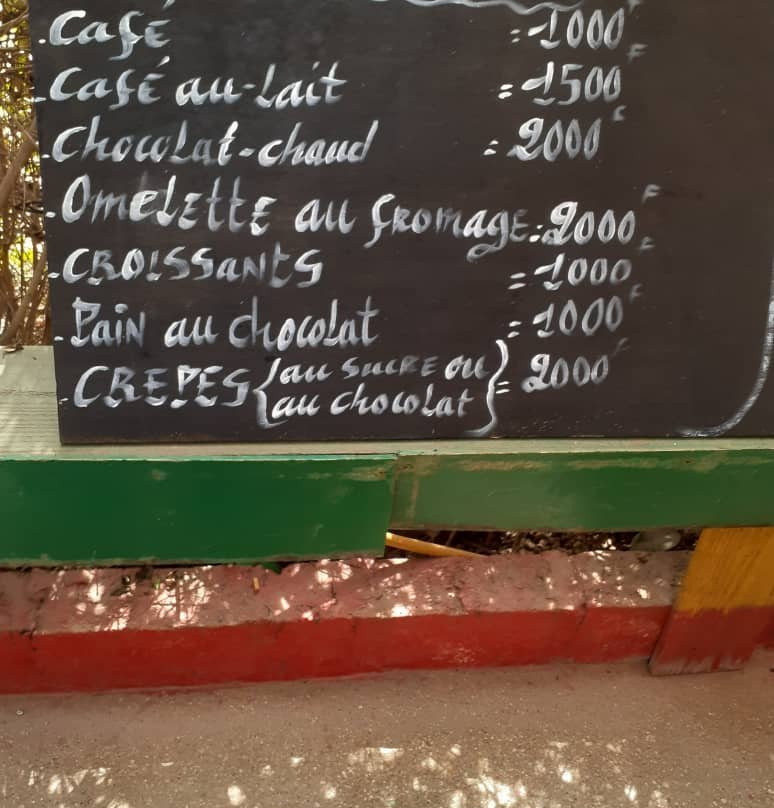 .Café :1000F
.Café au-Lait =1500F
.Chocolat-chaud =2000F
.Omelette au fromage.=2000F
.CROISSANtS =1000F
.Pain au chocolat =1000F
.CREPES {au SUCRE ou
au chocolat} =2000F